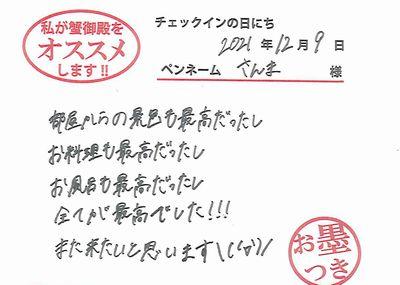 私が蟹御殿を
オススメ
します!!
チェックインの日にち
2021年12月9日
ペンネーム さんま 様
部屋からの景色も最高だったし
お料理も最高だったし
お風呂も最高だったし
全てが最高でした!!!
また来たいと思います\(^o^)/
お墨
つき